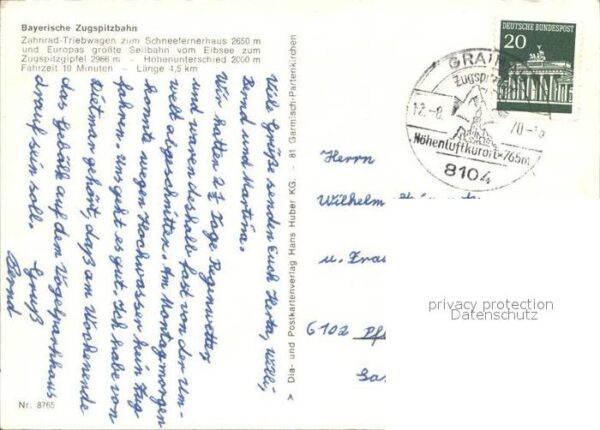 Bayerische Zugspitzbahn
Zahnrad-Triebwagen zum Schneefernerhaus 2650 m
und Europas größte Seilbahn vom Eibsee zum
Zugspitzgipfel 2966 m - Höhenunterschied 2000 m
Fahrzeit 10 Minuten - Länge 4,5 km
Viele Grüße senden Euch Herta, Willi,
Bernd und Martina.
Wir hatten 2 ½ Tage Regenwetter
und waren deshalb fast von der Um-
welt abgeschnitten. Am Montagmorgen
konnte wegen Hochwasser kein Zug
fahren. Uns geht es gut. Ich habe von
Dietmar gehört, daß am Wochenende
das Gebälk auf dem Vogelparkhaus
drauf sein soll. Gruß
Bernd
Nr. 8765
Dia- und Postkartenverlag Hans Huber KG. - 81 Garmisch-Partenkirchen
DEUTSCHE BUNDESPOST
20
GRAIN
Zugspitz
12.-8. 70-18
Höhenluftkurort-765m
8104
Herrn
Wilhelm
u. Frau
6102 Pfu
privacy protection
Datenschutz